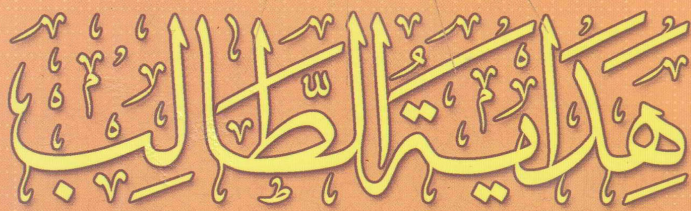 هِدَايَةُ الطَّالِبِ